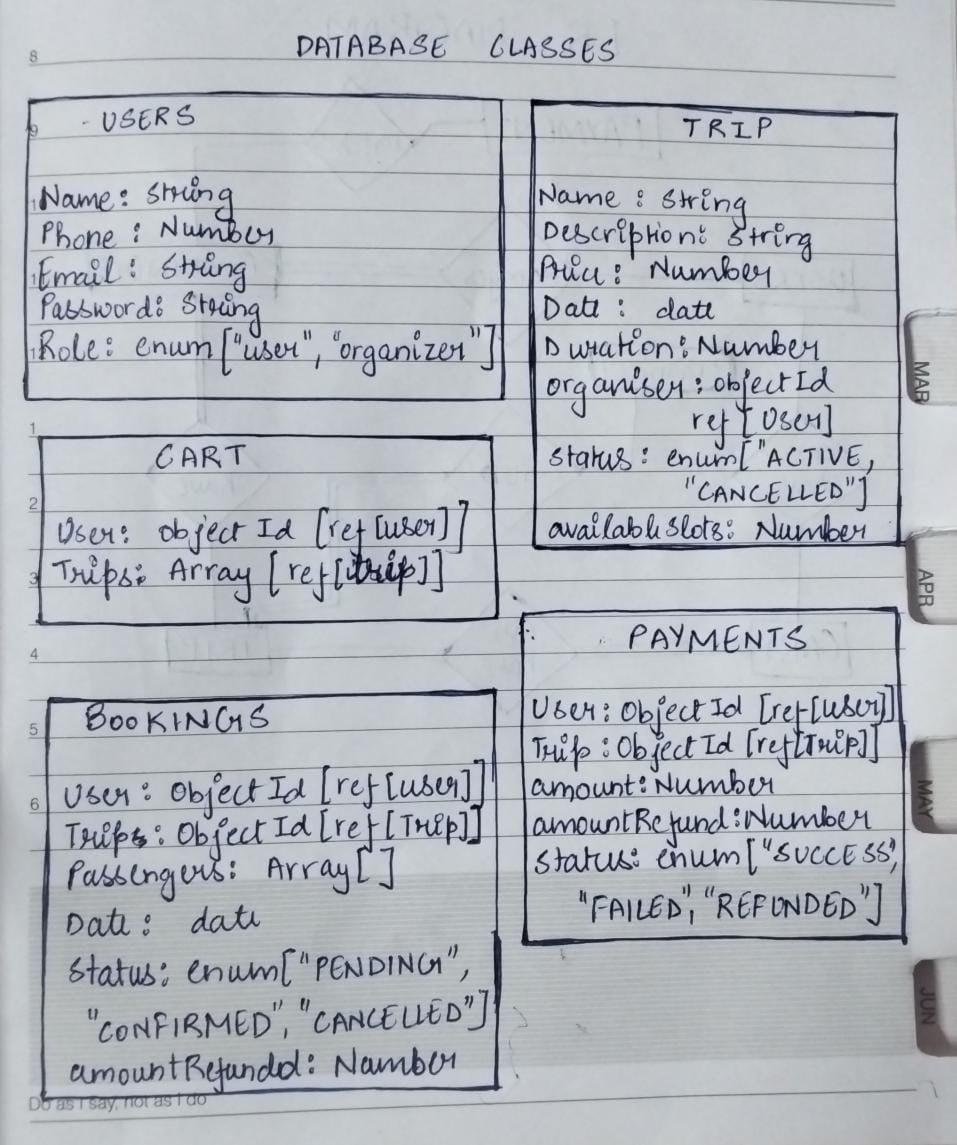 8
DATABASE CLASSES
9
USERS
Name: String
Phone: Number
Email: String
Password: String
Role: enum ["user", "organizer"]
TRIP
Name : String
Description: String
Price: Number
Date : date
Duration: Number
organiser: object Id
ref [User]
status: enum["ACTIVE,
"CANCELLED"]
availableSlots: Number
1
CART
2
User: object Id [ref[user]]
3
Trips: Array [ref[trip]]
4
PAYMENTS
User: Object Id [ref[user]]
Trip: Object Id [ref[Trip]]
amount: Number
amountRefund: Number
Status: enum ["SUCCESS",
"FAILED", "REFUNDED"]
BOOKINGS
5
User: Object Id [ref[user]]
6
Trips: Object Id [ref[Trip]]
Passengers: Array[]
Date: date
Status: enum["PENDING",
"CONFIRMED", "CANCELLED"]
amountRefundd: Number
Do as I say, not as I do
MAR
APR
MAY
JUN